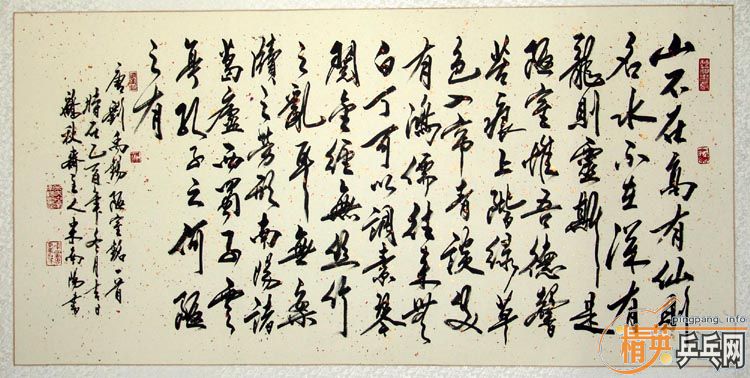 山不在高有仙則
名水不在深有
龍則靈斯是
陋室惟吾德馨
苔痕上階綠草
色入帘青談笑
有鴻儒往來無
白丁可以調素琴
閱金經無絲竹
之亂耳無案
牘之勞形南陽諸
葛廬西蜀子雲
亭孔子云何陋
之有
唐劉禹錫陋室銘一首
時在乙酉年冬月
齋主人書
pingpang.info
精英乒乓网